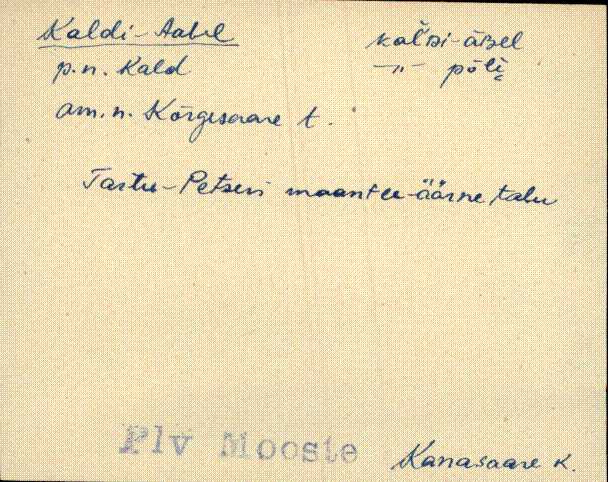 Kaldi-Aabel kal'ʙi-äʙel
p.n. Kald —"— põli
am.n. Kõrgesaare t.
Tartu-Petseri maantee-äärne talu
Plv Mooste Kanasaare k.